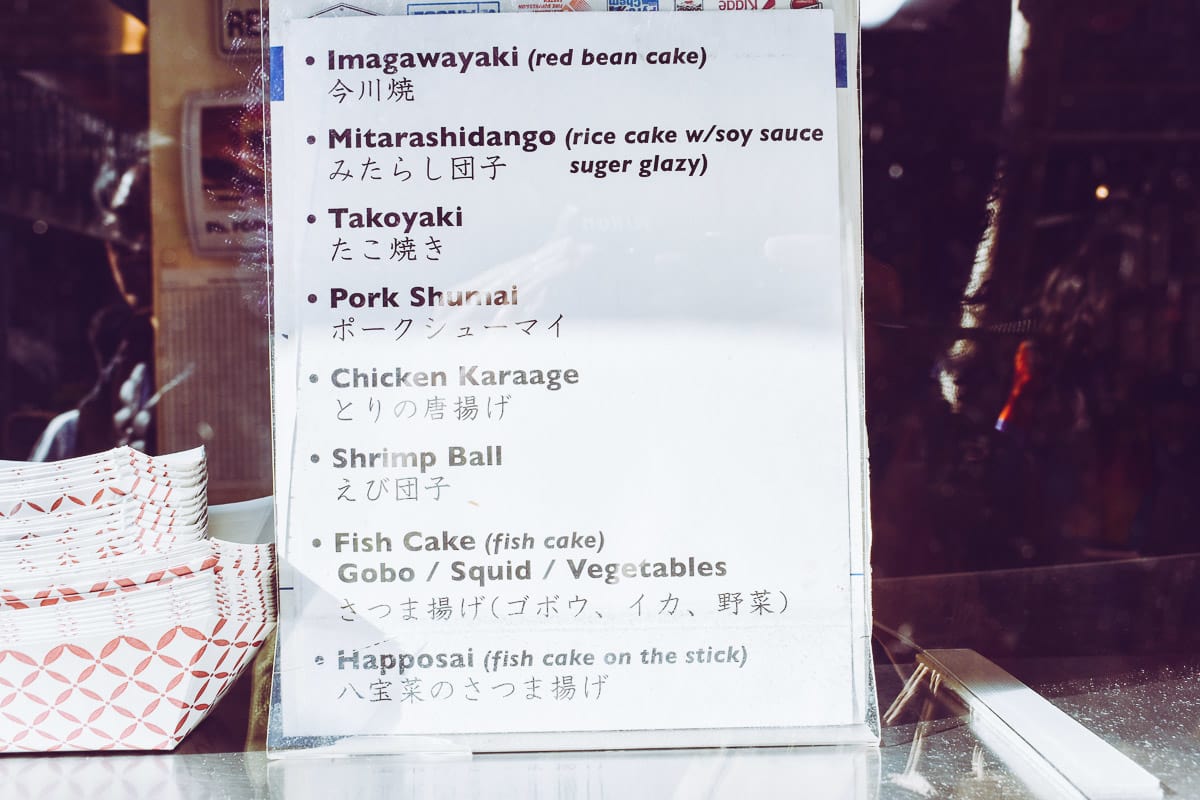 • Imagawayaki (red bean cake)
今川焼
• Mitarashidango (rice cake w/soy sauce
みたらし団子 suger glazy)
• Takoyaki
たこ焼き
• Pork Shumai
ポークシューマイ
• Chicken Karaage
とりの唐揚げ
• Shrimp Ball
えび団子
• Fish Cake (fish cake)
Gobo / Squid / Vegetables
さつま揚げ(ゴボウ、イカ、野菜)
• Happosai (fish cake on the stick)
八宝菜のさつま揚げ